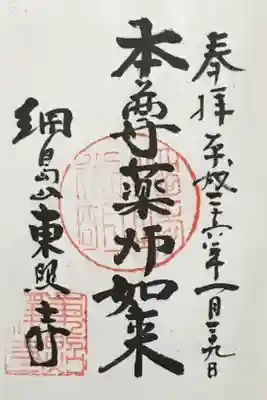 奉拝 平成二六年一月二九日
本尊薬師如来
細島山東照寺